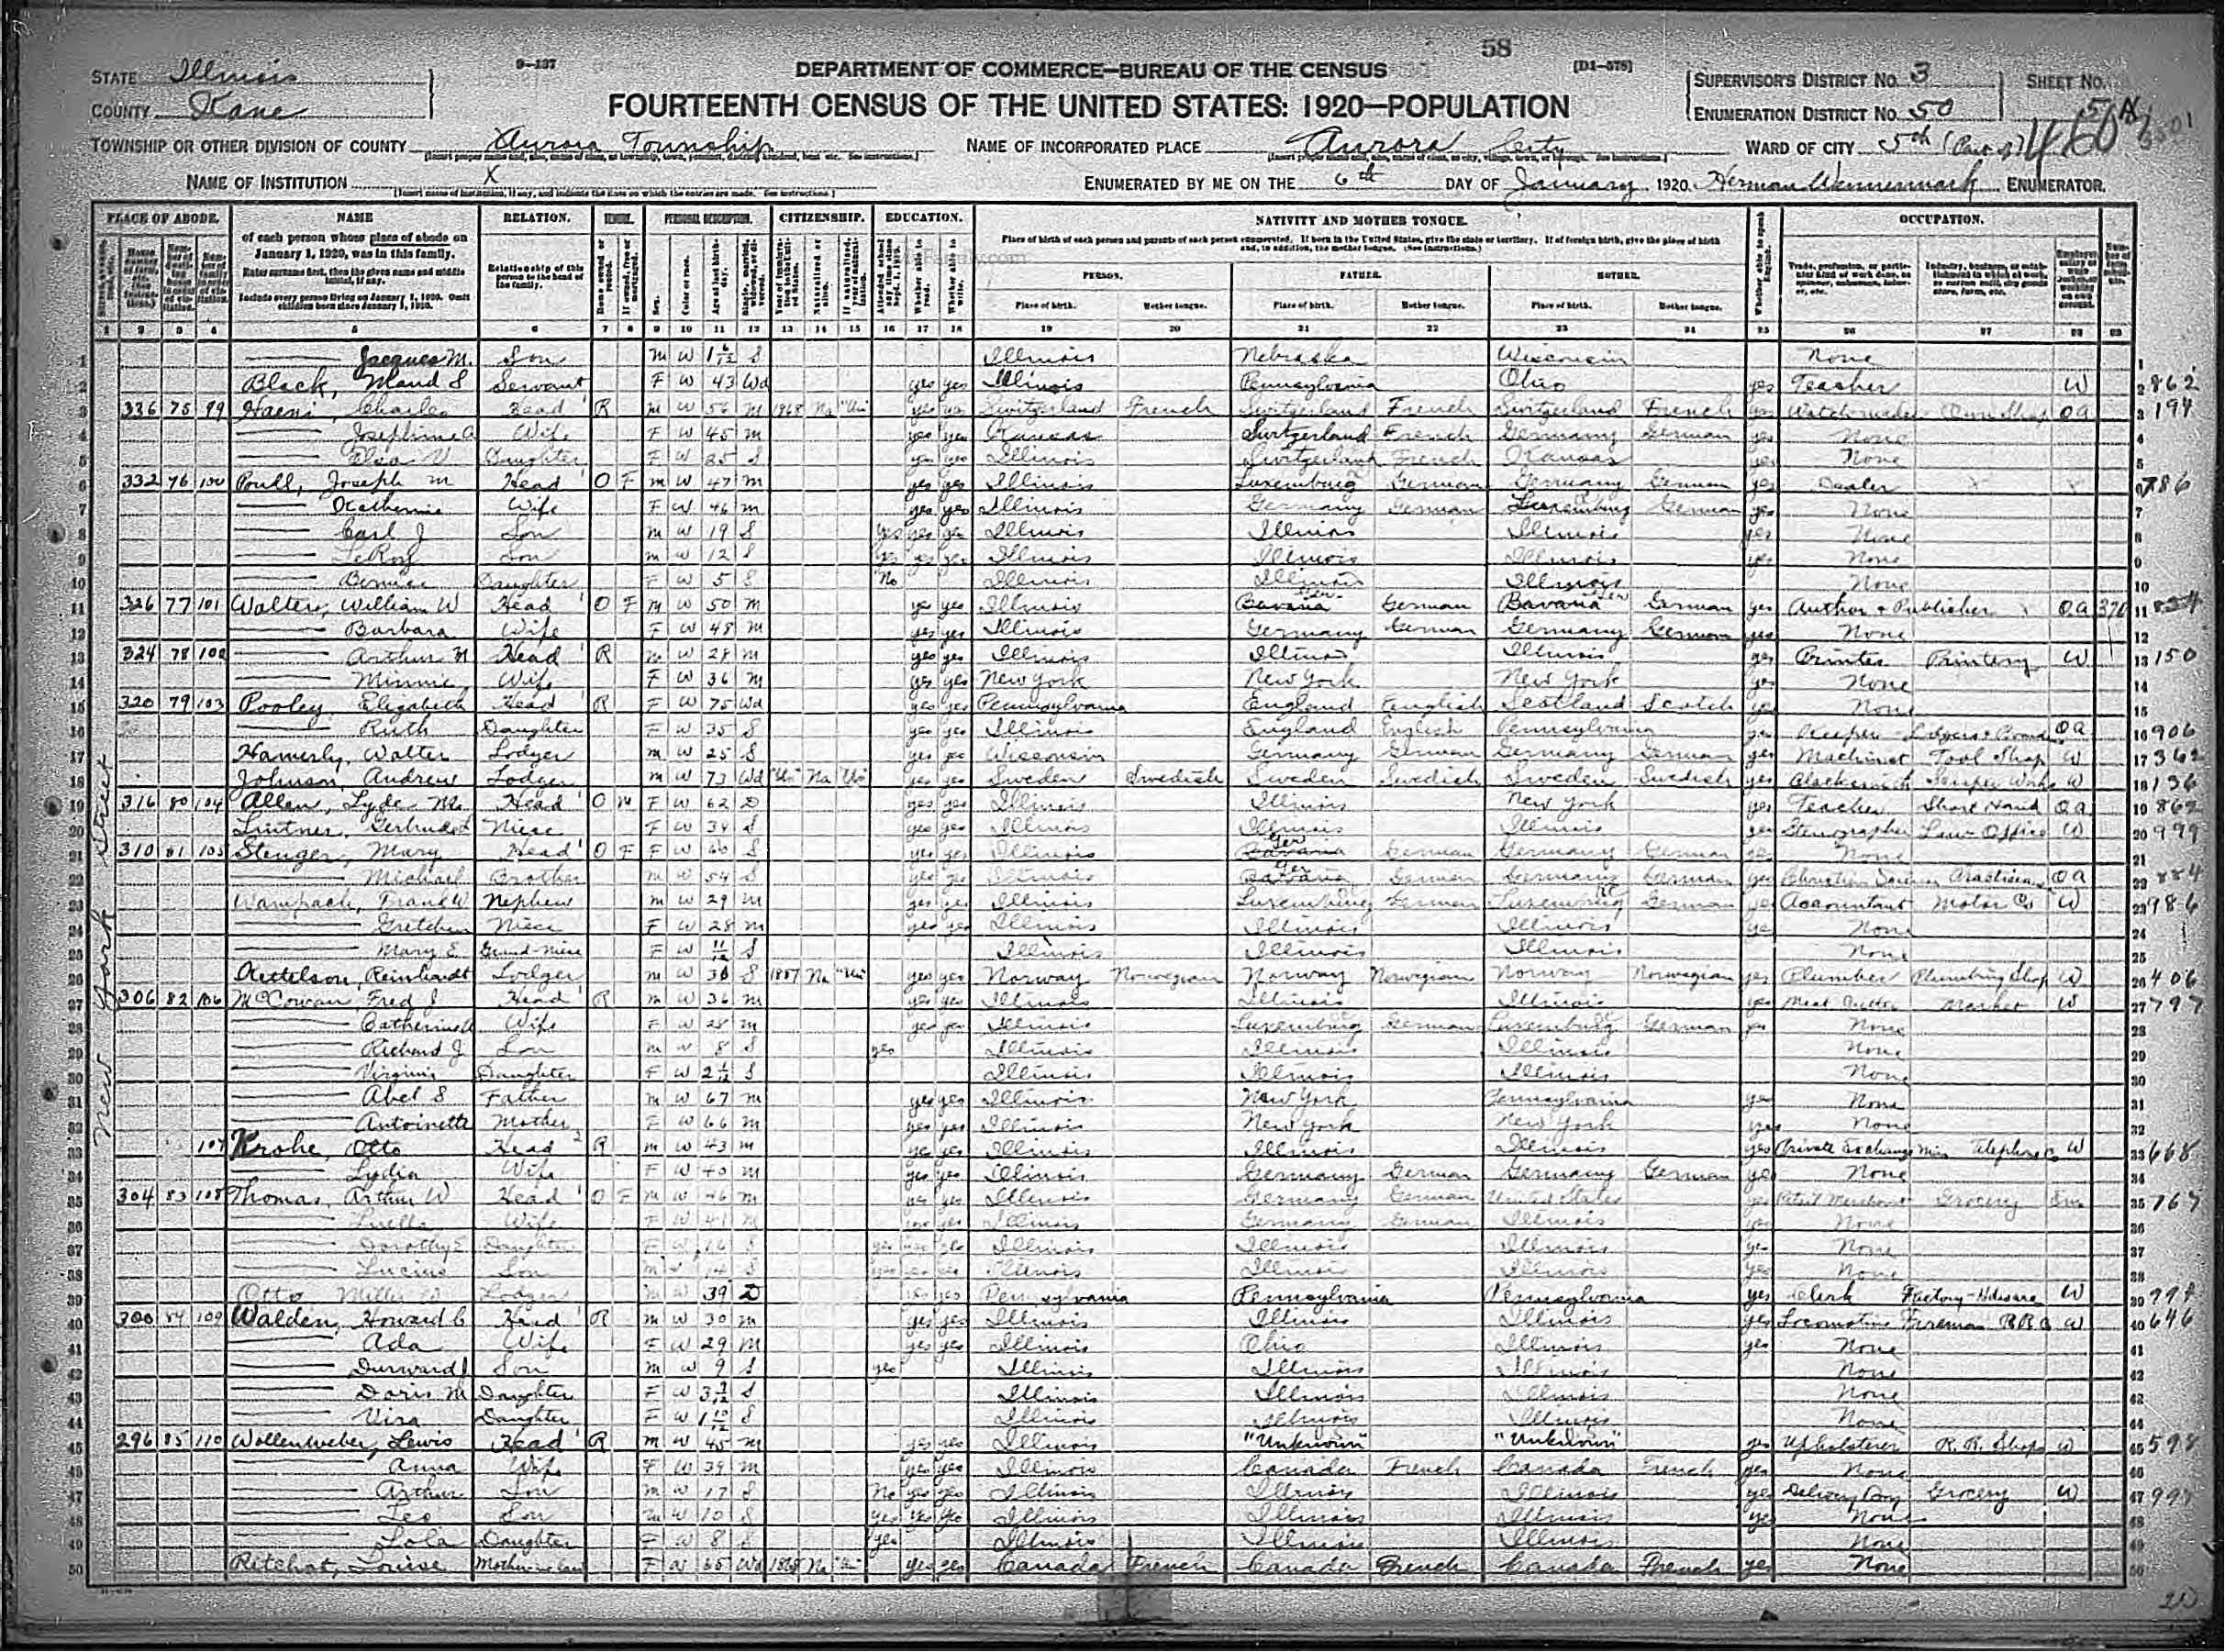 58
9-137
[D1-578]
STATE Illinois
DEPARTMENT OF COMMERCE—BUREAU OF THE CENSUS
SUPERVISOR'S DISTRICT No. 3 SHEET No.
COUNTY Kane
FOURTEENTH CENSUS OF THE UNITED STATES: 1920—POPULATION
ENUMERATION DISTRICT No. 50 5 A
460
TOWNSHIP OR OTHER DIVISION OF COUNTY Aurora Township NAME OF INCORPORATED PLACE Aurora City WARD OF CITY 5th (Part of)
NAME OF INSTITUTION X ENUMERATED BY ME ON THE 6th DAY OF January, 1920. Herman ENUMERATOR.
PLACE OF ABODE. NAME RELATION. TENURE. PERSONAL DESCRIPTION. CITIZENSHIP. EDUCATION. NATIVITY AND MOTHER TONGUE. OCCUPATION.
of each person whose place of abode on January 1, 1920, was in this family.
Enter surname first, then the given name and middle initial, if any.
Include every person living on January 1, 1920. Omit children born since January 1, 1920.
Relationship of this person to the head of the family.
Place of birth of each person and parents of each person enumerated. If born in the United States, give the state or territory. If of foreign birth, give the place of birth and, in addition, the mother tongue. (See instructions.)
PERSON. FATHER. MOTHER.
Place of birth. Mother tongue. Place of birth. Mother tongue. Place of birth. Mother tongue.
1 2 3 4 5 6 7 8 9 10 11 12 13 14 15 16 17 18 19 20 21 22 23 24 25 26 27 28 29
New York Street
1 Jacques M. Son M W 1 6/12 S Illinois Nebraska Wisconsin None 1
2 Black, Maud S Servant F W 43 Wd yes yes Illinois Pennsylvania Ohio yes Teacher W 2 862
3 336 75 99 Charles Head R M W 56 M 1868 Na "Un" yes yes Switzerland French Switzerland French Switzerland French yes Watchmaker Own Shop OA 3 194
4 Josephine A Wife F W 45 M yes yes Kansas Switzerland French Germany German yes None 4
5 Elsa V Daughter F W 25 S yes yes Illinois Switzerland French Kansas yes None 5
6 332 76 100 Poull, Joseph M Head O F M W 47 M yes yes Illinois Luxemburg German Germany German yes Dealer X X 6 786
7 Katherine Wife F W 46 M yes yes Illinois Germany German Luxemburg German yes None 7
8 Carl J Son M W 19 S yes yes yes Illinois Illinois Illinois yes None 8
9 LeRoy Son M W 12 S yes yes yes Illinois Illinois Illinois yes None 9
10 Bernice Daughter F W 5 S No Illinois Illinois Illinois None 10
11 326 77 101 Walters, William W Head O F M W 50 M yes yes Illinois Bavaria German Bavaria German yes Author & Publisher OA 370 11
12 Barbara Wife F W 48 M yes yes Illinois Germany German Germany German yes None 12
13 324 78 102 Arthur M Head R M W 28 M yes yes Illinois Illinois Illinois yes Printer Printery W 13 150
14 Minnie Wife F W 36 M yes yes New York New York New York yes None 14
15 320 79 103 Pooley, Elizabeth Head R F W 75 Wd yes yes Pennsylvania England English Scotland Scotch yes None 15
16 Ruth Daughter F W 35 S yes yes Illinois England English Pennsylvania yes Keeper OA 16 906
17 Hamerly, Walter Lodger M W 25 S yes yes Wisconsin Germany German Germany German yes Machinist Tool Shop W 17 362
18 Johnson, Andrew Lodger M W 73 Wd "Un" Na "Un" yes yes Sweden Swedish Sweden Swedish Sweden Swedish yes Blacksmith W 18 136
19 316 80 104 Allen, Lyde M. Head O M F W 62 D yes yes Illinois Illinois New York yes Teacher Short Hand OA 19 862
20 Lintner, Gertrude L Niece F W 34 S yes yes Illinois Illinois Illinois yes Stenographer Law Office W 20 999
21 310 81 105 Stenger, Mary Head O F F W 60 S yes yes Illinois Bavaria German Germany German yes None 21
22 Michael Brother M W 54 S yes yes Illinois Bavaria German Germany German yes Christian Science Practitioner OA 22 884
23 Wampach, Frank W Nephew M W 29 M yes yes Illinois Luxemburg German Luxemburg German yes Accountant Motor Co W 23 986
24 Gretchen Niece F W 28 M yes yes Illinois Illinois Illinois yes None 24
25 Mary E Grand-niece F W 11/12 S Illinois Illinois Illinois None 25
26 Reinhardt Lodger M W 36 S 1887 Na "Un" yes yes Norway Norwegian Norway Norwegian Norway Norwegian yes Plumber Plumbing Shop W 26 406
27 306 82 106 McCowan, Fred J Head R M W 36 M yes yes Illinois Illinois Illinois yes Meat Cutter Market W 27 797
28 Catherine A Wife F W 28 M yes yes Illinois Luxemburg German Luxemburg German yes None 28
29 Richard J Son M W 8 S yes Illinois Illinois Illinois None 29
30 Virginia Daughter F W 2 S Illinois Illinois Illinois None 30
31 Abel S Father M W 67 M yes yes Illinois New York Pennsylvania yes None 31
32 Antoinette Mother F W 66 M yes yes Illinois New York New York yes None 32
33 107 Krohe, Otto Head R M W 43 M yes yes Illinois Illinois Illinois yes Private Exchange Man Telephone Co W 33 668
34 Lydia Wife F W 40 M yes yes Illinois Germany German Germany German yes None 34
35 304 83 108 Thomas, Arthur W Head O F M W 46 M yes yes Illinois Germany German United States yes Retail Merchant Grocery Em 35 767
36 Luella Wife F W 41 M yes yes Illinois Germany German Illinois yes None 36
37 Dorothy E Daughter F W 16 S yes yes yes Illinois Illinois Illinois yes None 37
38 Lucius Son M W 14 S yes yes yes Illinois Illinois Illinois yes None 38
39 Otto Miller W Lodger M W 39 D yes yes Pennsylvania Pennsylvania Pennsylvania yes Clerk Factory-Hdware W 39
40 300 84 109 Walden, Howard C Head R M W 30 M yes yes Illinois Illinois Illinois yes Locomotive Fireman R R Co W 40 646
41 Ada Wife F W 29 M yes yes Illinois Ohio Illinois yes None 41
42 Durward J Son M W 9 S yes Illinois Illinois Illinois None 42
43 Doris M Daughter F W 3 S Illinois Illinois Illinois None 43
44 Vira Daughter F W 1 10/12 S Illinois Illinois Illinois None 44
45 296 85 110 Wollenweber, Lewis Head R M W 45 M yes yes Illinois "Unknown" "Unknown" yes Upholsterer R.R. Shops W 45 598
46 Anna Wife F W 39 M yes yes Illinois Canada French Canada French yes None 46
47 Arthur Son M W 17 S No yes yes Illinois Illinois Illinois yes Delivery Boy Grocery W 47
48 Leo Son M W 10 S yes yes yes Illinois Illinois Illinois yes None 48
49 Lola Daughter F W 8 S yes Illinois Illinois Illinois None 49
50 Ritchot, Louise Mother in law F W 65 Wd 1868 Na "Un" yes yes Canada French Canada French Canada French yes None 50